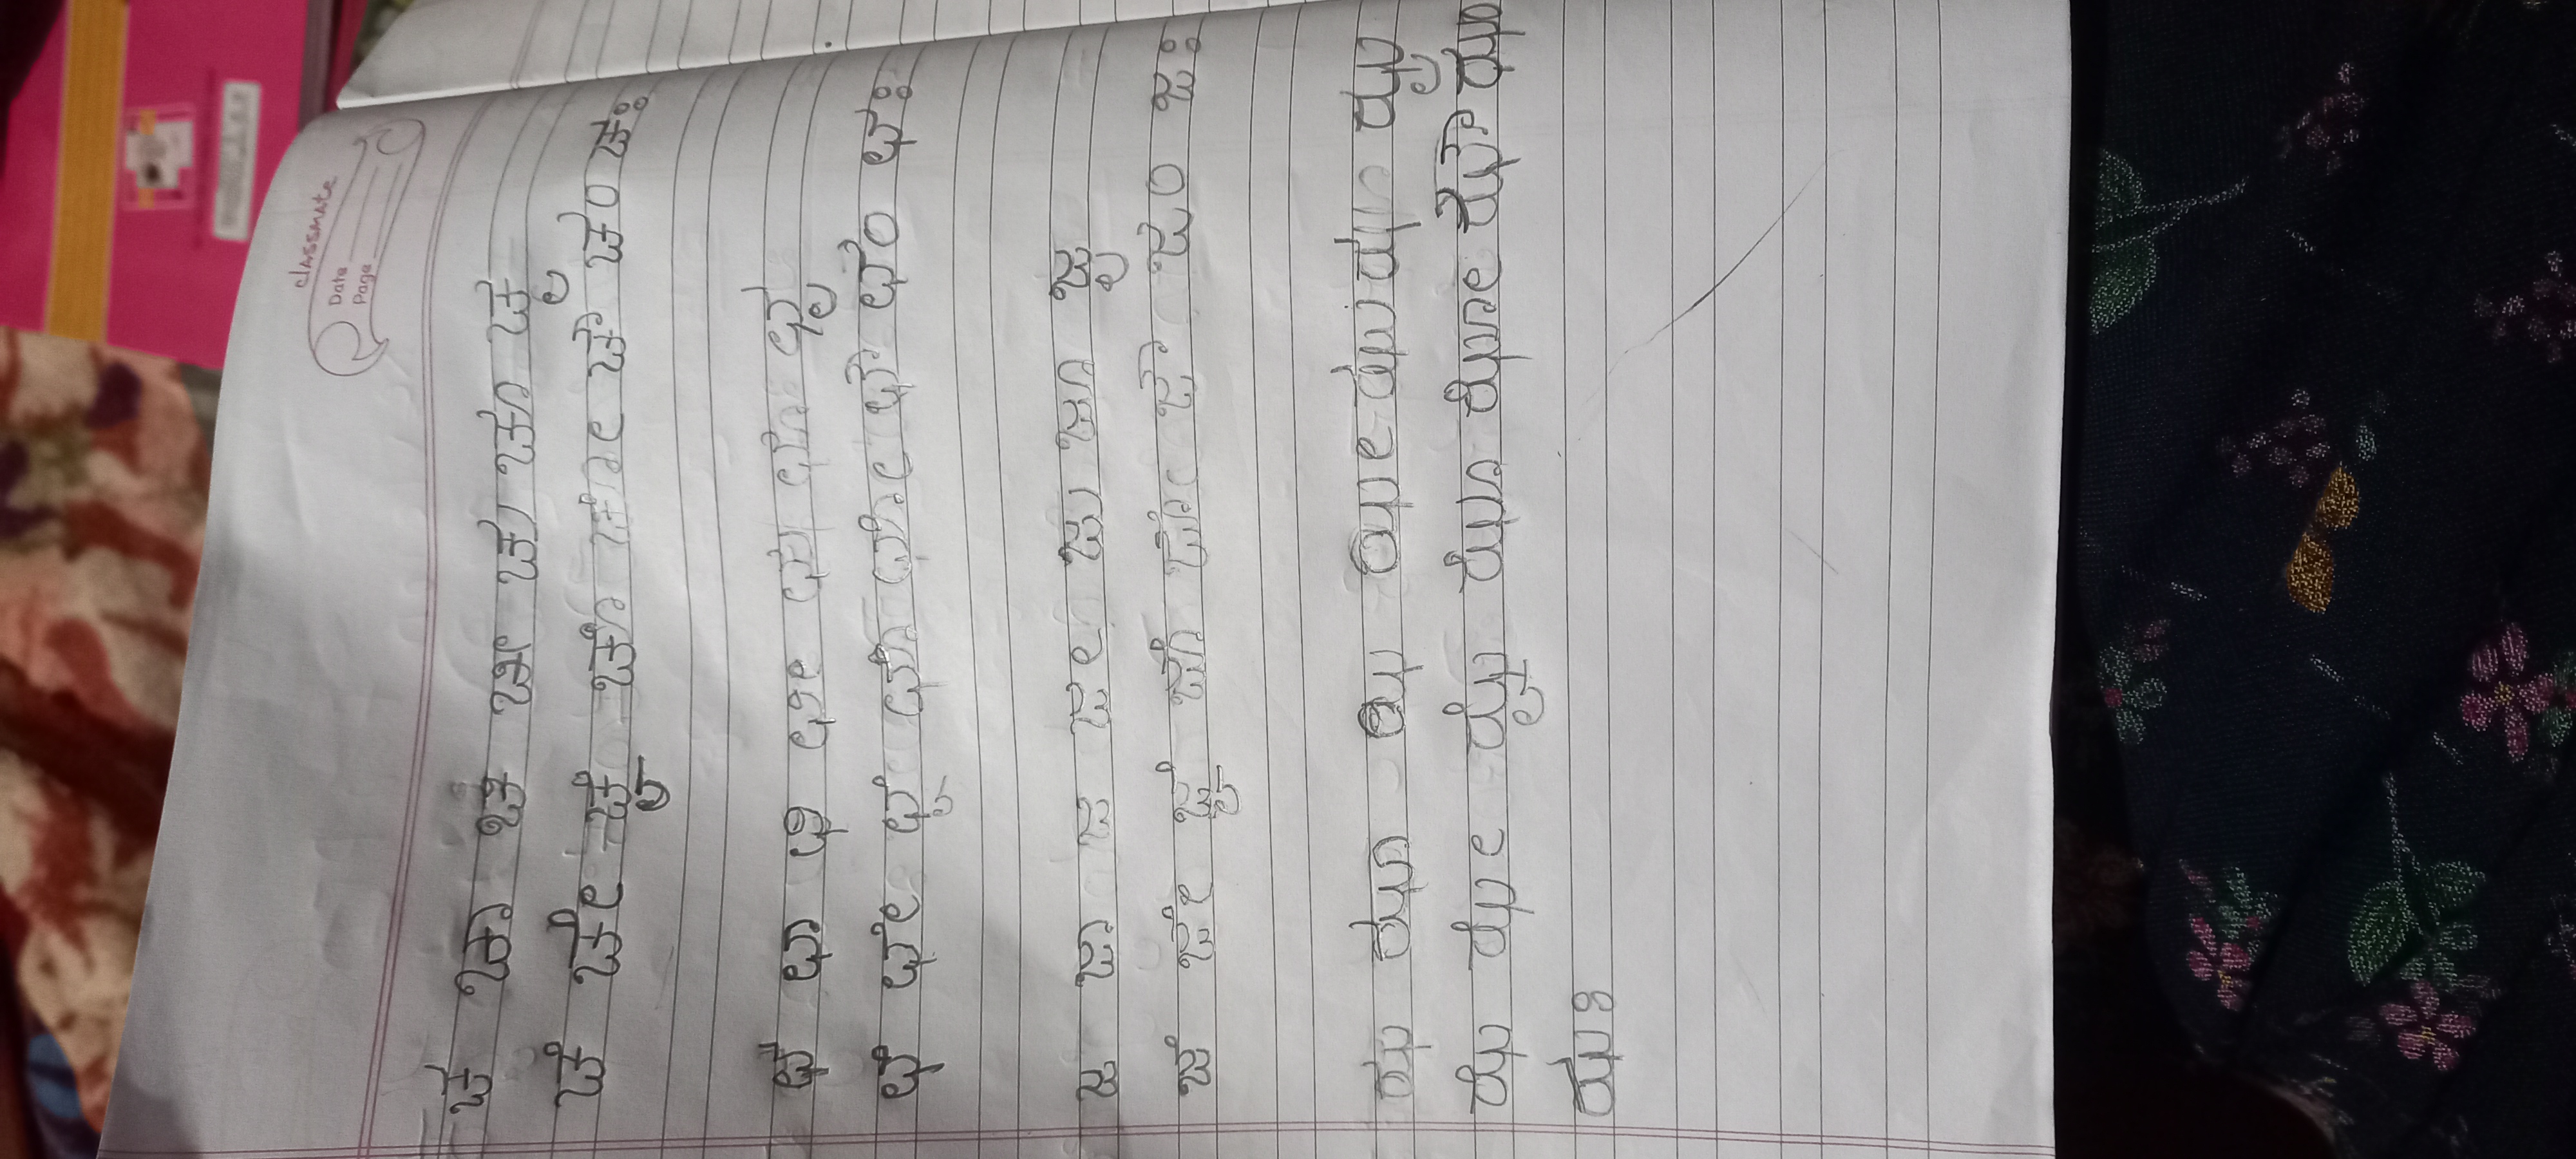 classmate
Date
Page
ಚ ಚಾ ಚಿ ಚೀ ಚು ಚೂ ಚೃ
ಚೆ ಚೇ ಚೈ ಚೊ ಚೋ ಚೌ ಚಂ ಚಃ
ಛ ಛಾ ಛಿ ಛೀ ಛು ಛೂ ಛೃ
ಛೆ ಛೇ ಛೈ ಛೊ ಛೋ ಛೌ ಛಂ ಛಃ
ಜ ಜಾ ಜಿ ಜೀ ಜು ಜೂ ಜೃ
ಜೆ ಜೇ ಜೈ ಜೊ ಜೋ ಜೌ ಜಂ ಜಃ
ಝ ಝಾ ಝಿ ಝೀ ಝು ಝೂ ಝೃ
ಝೆ ಝೇ ಝೈ ಝೊ ಝೋ ಝೌ ಝಂ
ಝಃ